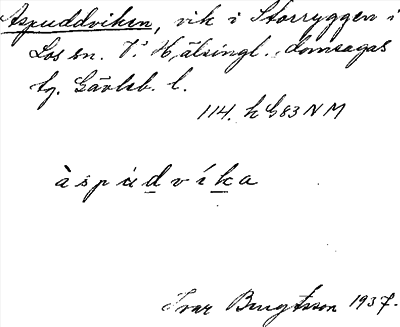 Aspuddviken, vik i Storryggen i
Los sn. V. Hälsingl. domsagas
tg. Gävleb. l.
114. h G83 N M
àspùdvíka
Ivar Bengtsson 1937.